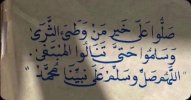 صَلُّوا عَلَى خَيْرِ مَنْ وَطِئَ الثَّرَى
وَسَلِّمُوا حَتَّى تَنَالُوا المُبْتَغَى
اللَّهُمَّ صَلِّ وَسَلِّمْ عَلَى نَبِيِّنَا مُحَمَّدٍ